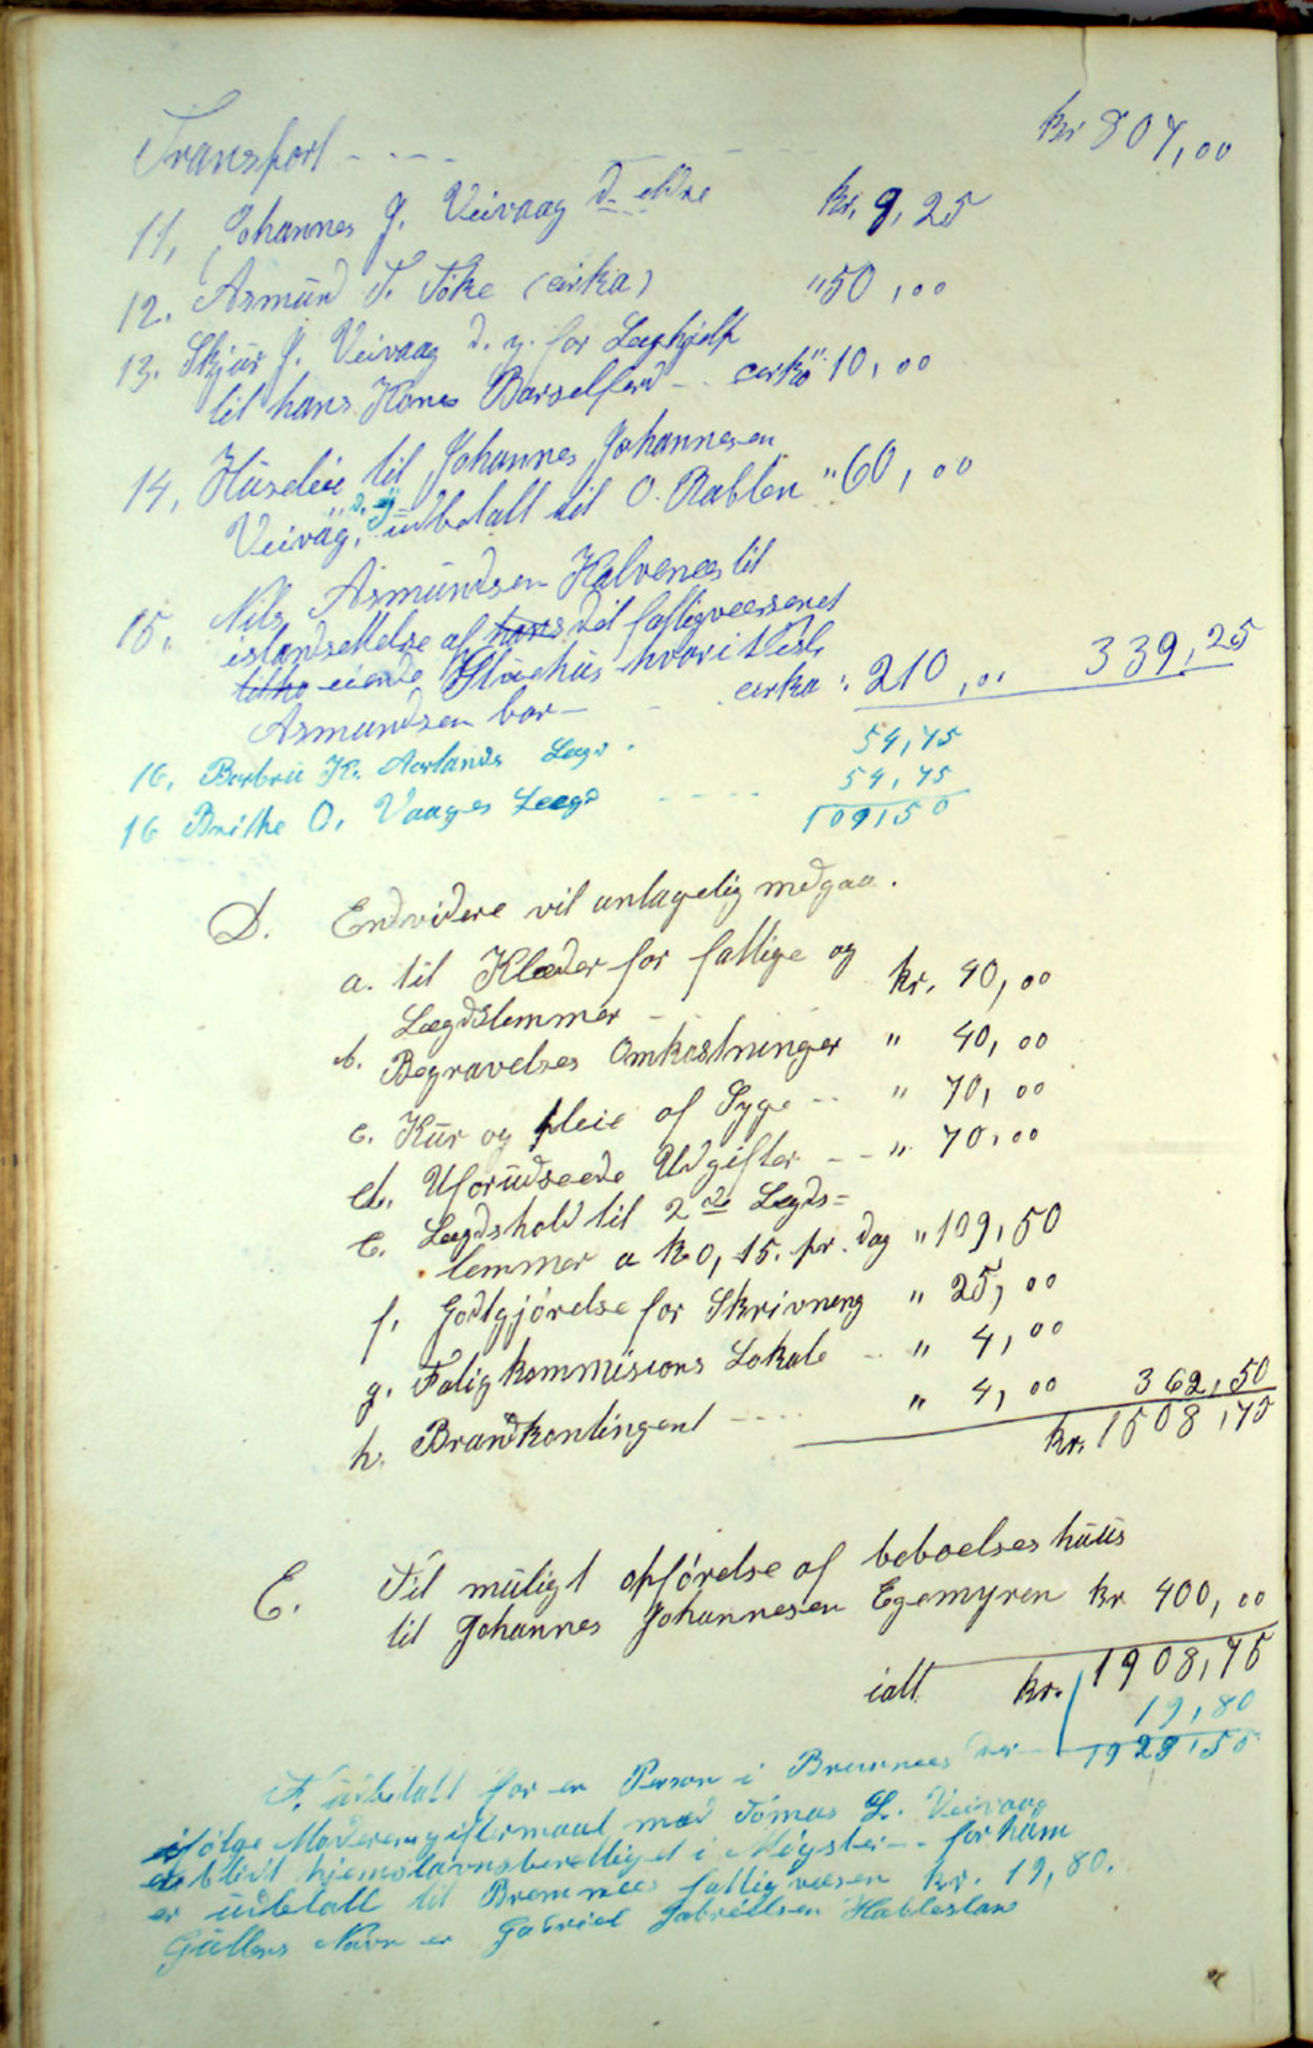 Transport - - - - kr 807,00
11, Johannes J. Veivaag d. eldre kr. 9,25
12. Asmund T. Töke (cirka) " 50,00
13. Skjur J. Veivaag d. y. for Læghjelp
til hans Kones Barselferd - cirka " 10,00
14, Husleie til Johannes Johannesen
Veivåg, d. y. udbetalt til O. Rabben " 60,00
15. Nils Asmundsen Kalvenes til
istandsettelse af hans det fattigvæsenet
tilho eiende Stuehus hvori Nils
Asmundsen bor - - cirka " 210,00 339,25
16, Barbru K. Aarlands Lægd . 54,75
16 Brithe O, Vaages Lægd - - - - 54,75
109,50
D. Endvidere vil antagelig medgaa.
a. til Klæder for fattige og
Lægdslemmer - kr. 40,00
b. Begravelses Omkostninger " 40,00
c. Kur og pleie af Syge - - " 70,00
d. Uforudseede Udgifter - - " 70,00
e. Lægdshold til 2de Lægds=
lemmer a k 0,15. pr. dag " 109,50
f. Godtgjörelse for Skrivning " 25,00
g. Fatigkommisions Lokale - " 4,00
h. Brandkontingent - - - - " 4,00 362,50
kr. 1508,75
E. Til muligt opförelse af beboelseshuus
til Johannes Johannesen Egemyren kr 400,00
ialt kr. 1908,75
19,80
F. udbetalt for en Person i Bremnes der - 1928,55
ifölge Moderens giftermaal med Tómas L. Veivaag
er blivit hjemstavnsberettiget i Mögster - - for ham
er udbetalt til Bremnes fattigvæsen kr. 19,80.
Guttens Navn er Gabriel Gabrielsen Hableslan